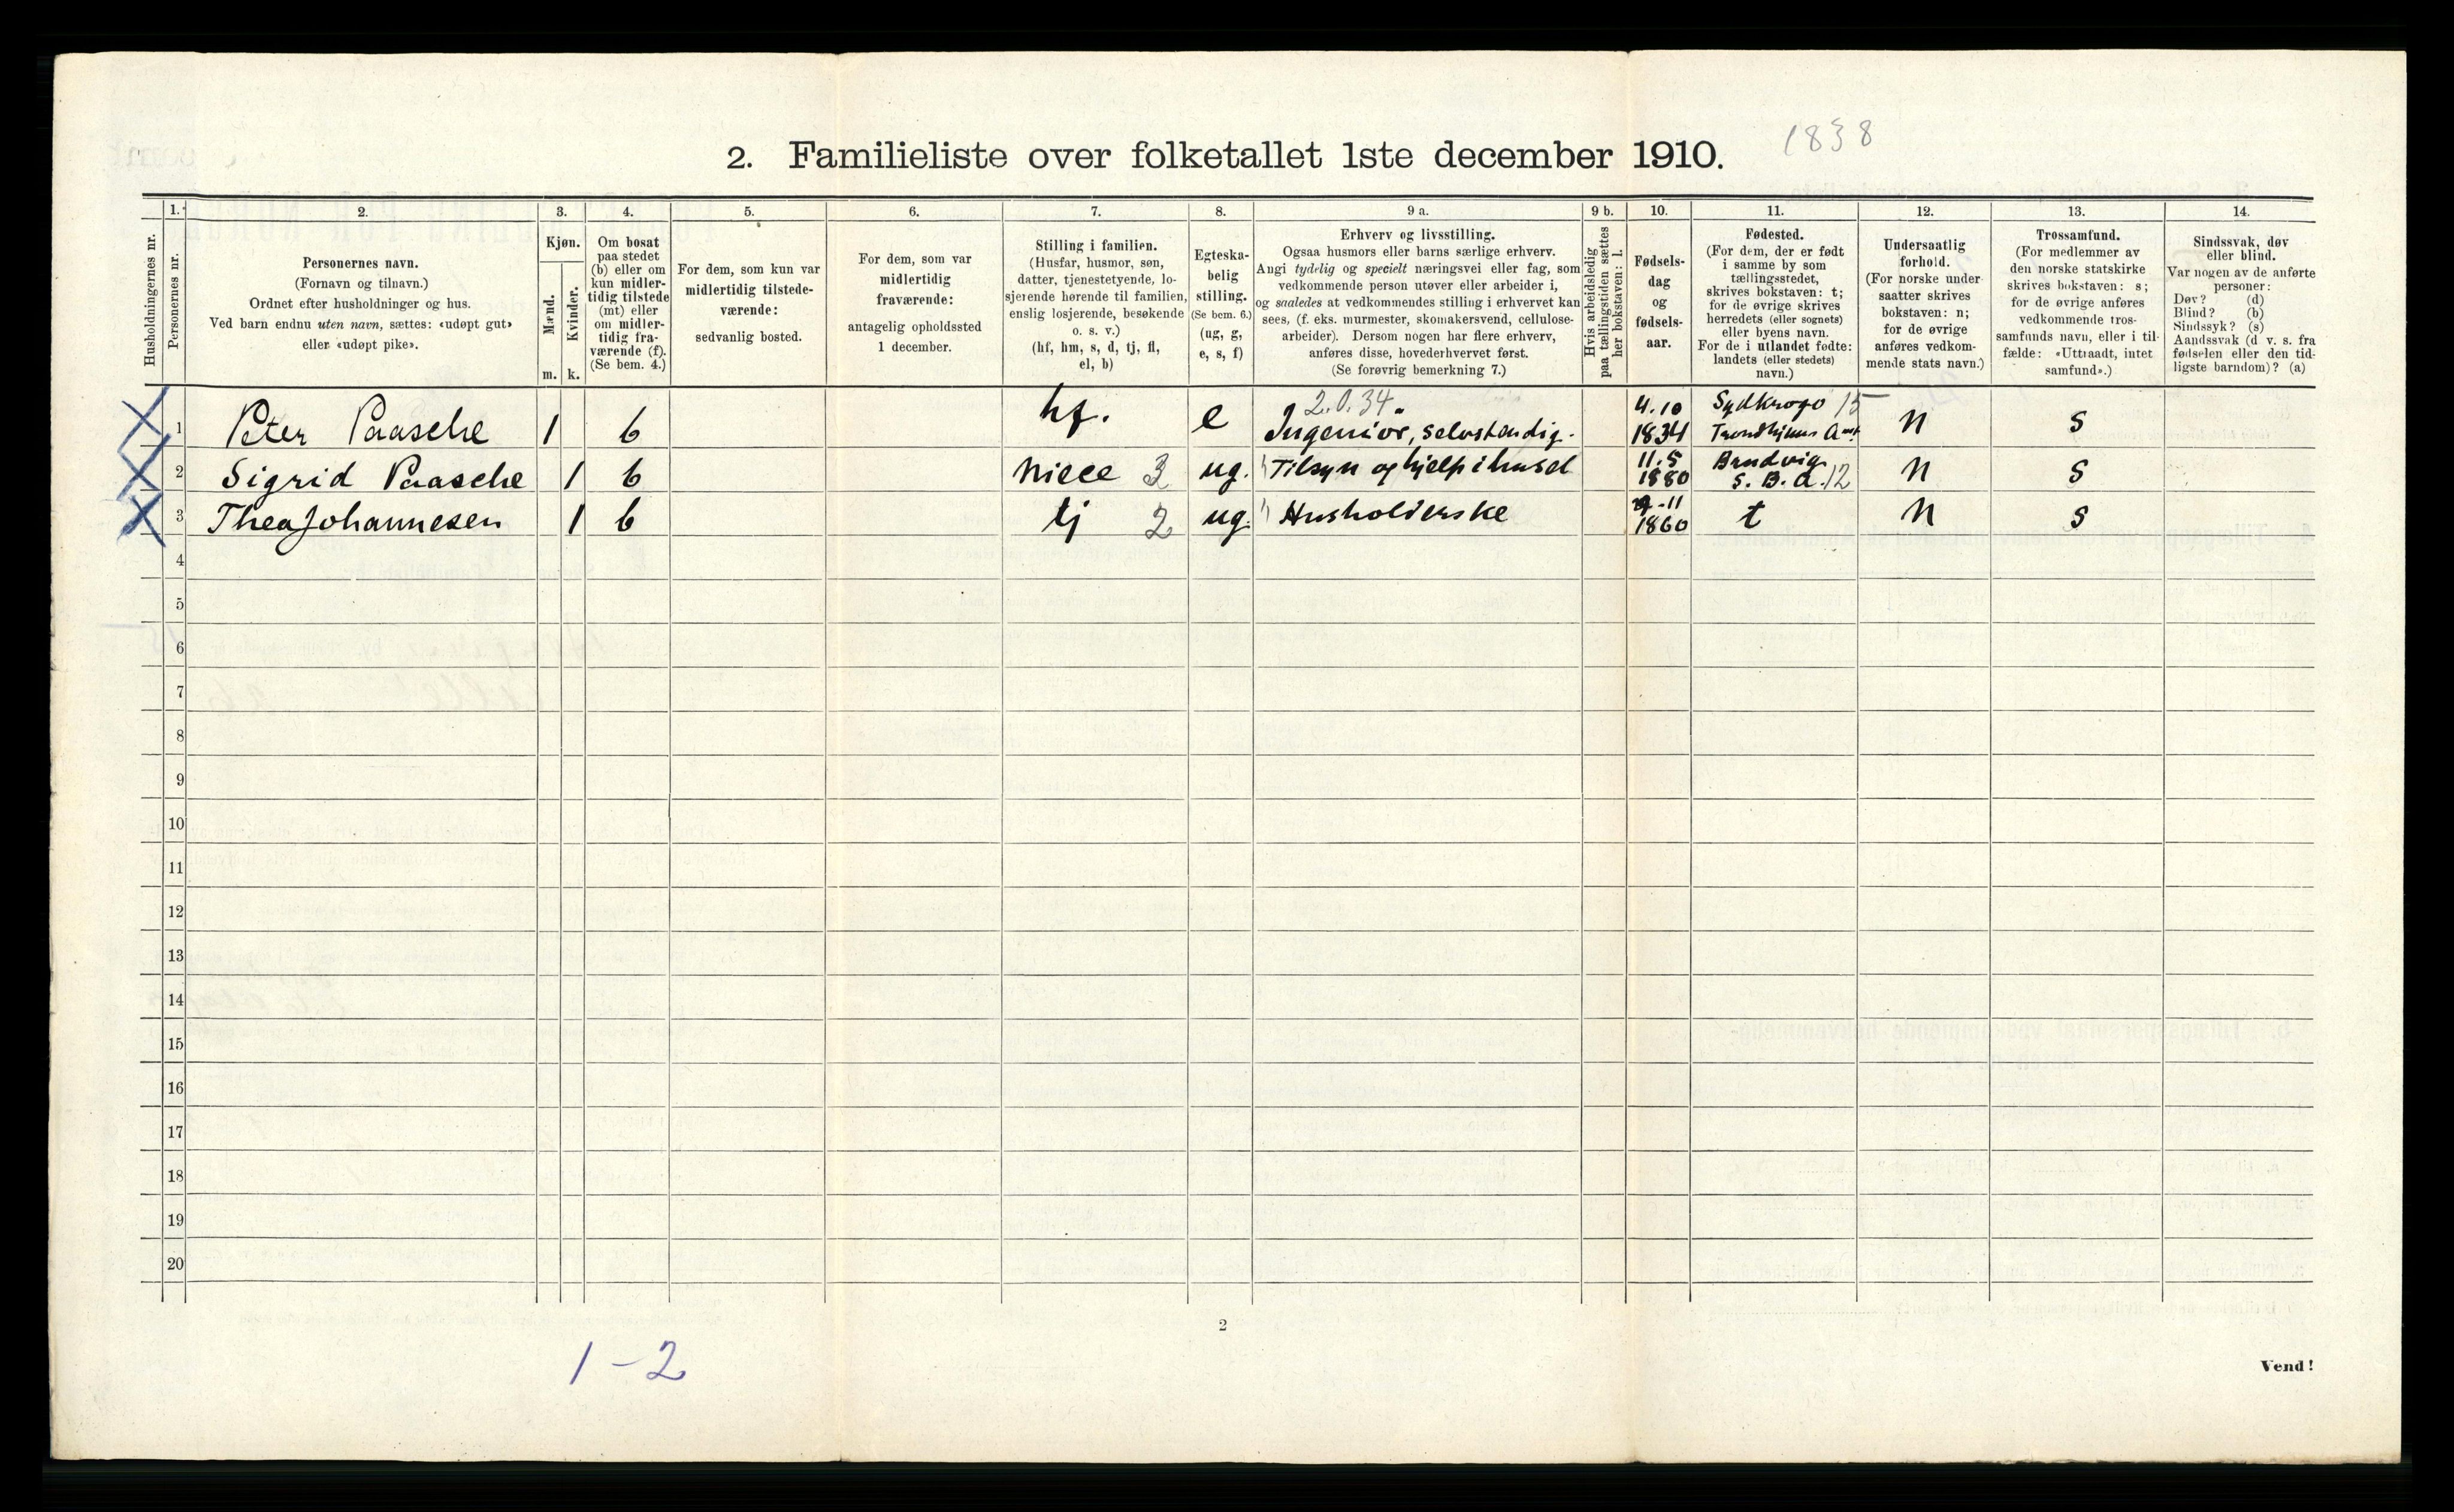 1838
2. Familieliste over folketallet 1ste december 1910.
1. 2. 3. 4. 5. 6. 7. 8. 9 a. 9 b. 10. 11. 12. 13. 14.
Husholdningernes nr.
Personernes nr.
Personernes navn.
(Fornavn og tilnavn.)
Ordnet efter husholdninger og hus.
Ved barn endnu uten navn, sættes: «udøpt gut»
eller «udøpt pike».
Kjøn.
Mænd.
Kvinder.
m. k.
Om bosat
paa stedet
(b) eller om
kun midler-
tidig tilstede
(mt) eller
om midler-
tidig fra-
værende (f).
(Se bem. 4.)
For dem, som kun var
midlertidig tilstede-
værende:
sedvanlig bosted.
For dem, som var
midlertidig
fraværende:
antagelig opholdssted
1 december.
Stilling i familien.
(Husfar, husmor, søn,
datter, tjenestetyende, lo-
sjerende hørende til familien,
enslig losjerende, besøkende
o. s. v.)
(hf, hm, s, d, tj, fl,
el, b)
Egteska-
belig
stilling.
(Se bem. 6.)
(ug, g,
e, s, f)
Erhverv og livsstilling.
Ogsaa husmors eller barns særlige erhverv.
Angi tydelig og specielt næringsvei eller fag, som
vedkommende person utøver eller arbeider i,
og saaledes at vedkommendes stilling i erhvervet kan
sees, (f. eks. murmester, skomakersvend, cellulose-
arbeider). Dersom nogen har flere erhverv,
anføres disse, hovederhvervet først.
(Se forøvrig bemerkning 7.)
Hvis arbeidsledig
paa tællingstiden sættes
her bokstaven: l.
Fødsels-
dag
og
fødsels-
aar.
Fødested.
(For dem, der er født
i samme by som
tællingsstedet,
skrives bokstaven: t;
for de øvrige skrives
herredets (eller sognets)
eller byens navn.
For de i utlandet fødte:
landets (eller stedets)
navn.)
Undersaatlig
forhold.
(For norske under
saatter skrives
bokstaven: n;
for de øvrige
anføres vedkom-
mende stats navn.)
Trossamfund.
(For medlemmer av
den norske statskirke
skrives bokstaven: s;
for de øvrige anføres
vedkommende tros-
samfunds navn, eller i til-
fælde: «Uttraadt, intet
samfund».)
Sindssvak, døv
eller blind.
Var nogen av de anførte
personer:
Døv? (d)
Blind? (b)
Sindssyk? (s)
Aandssvak (d v. s. fra
fødselen eller den tid-
ligste barndom)? (a)
2.0.34. 4.10 Sydkrogo 15
1 Peter Paasche 1 b hf. e Ingeniør, selvstændig. 1834 Trondhjems Amt n s
11.5 Bruvig
2 Sigrid Paasche 1 b Niece 3 ug. Tilsyn og hjelp i huset 1880 S. B. A. 12 n s
-11
3 Thea Johannesen 1 b tj 2 ug. Husholderske 1860 t n s
4
5
6
7
8
9
10
11
12
13
14
15
16
17
18
19
20
2
1-2
Vend!